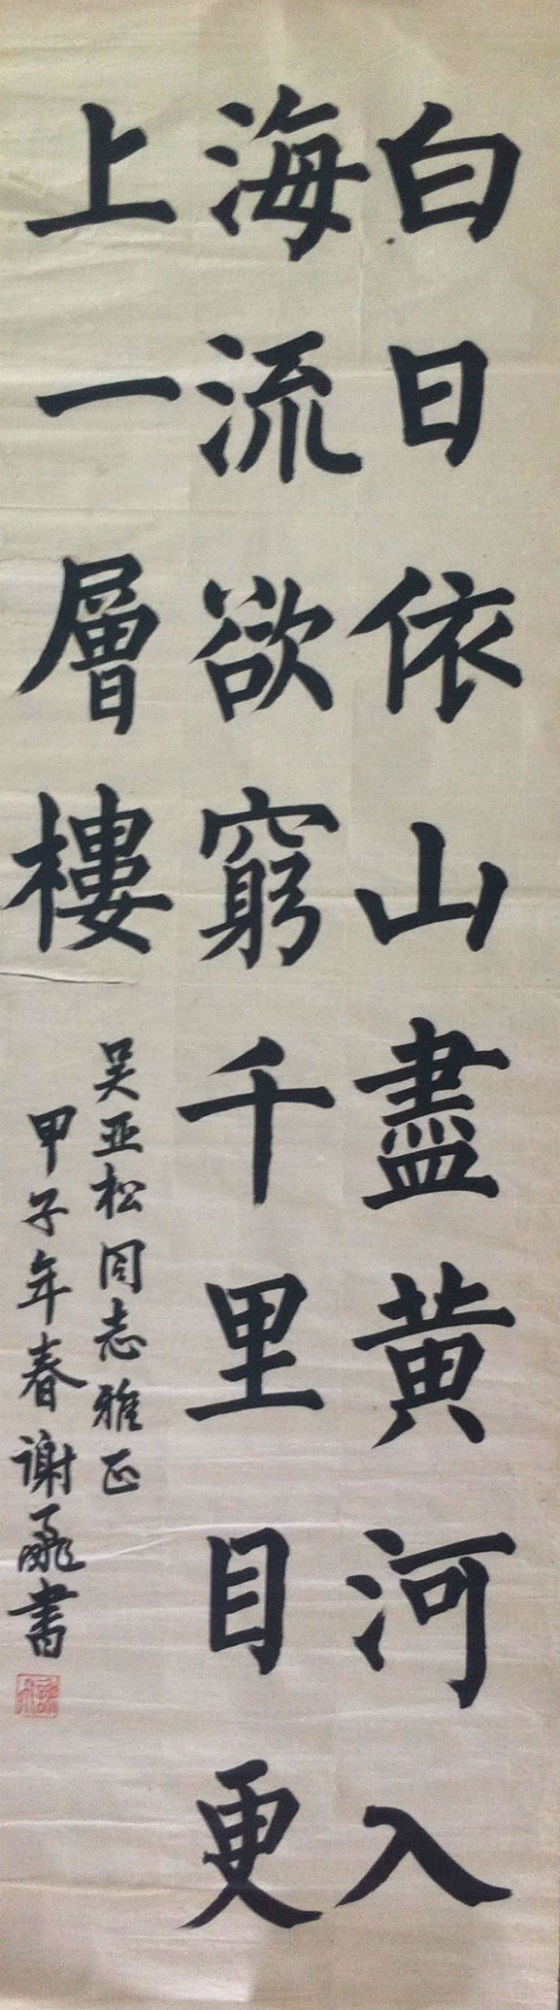 白日依山盡黄河入
海流欲窮千里目更
上一層樓
吴亚松同志雅正
甲子年春谢書